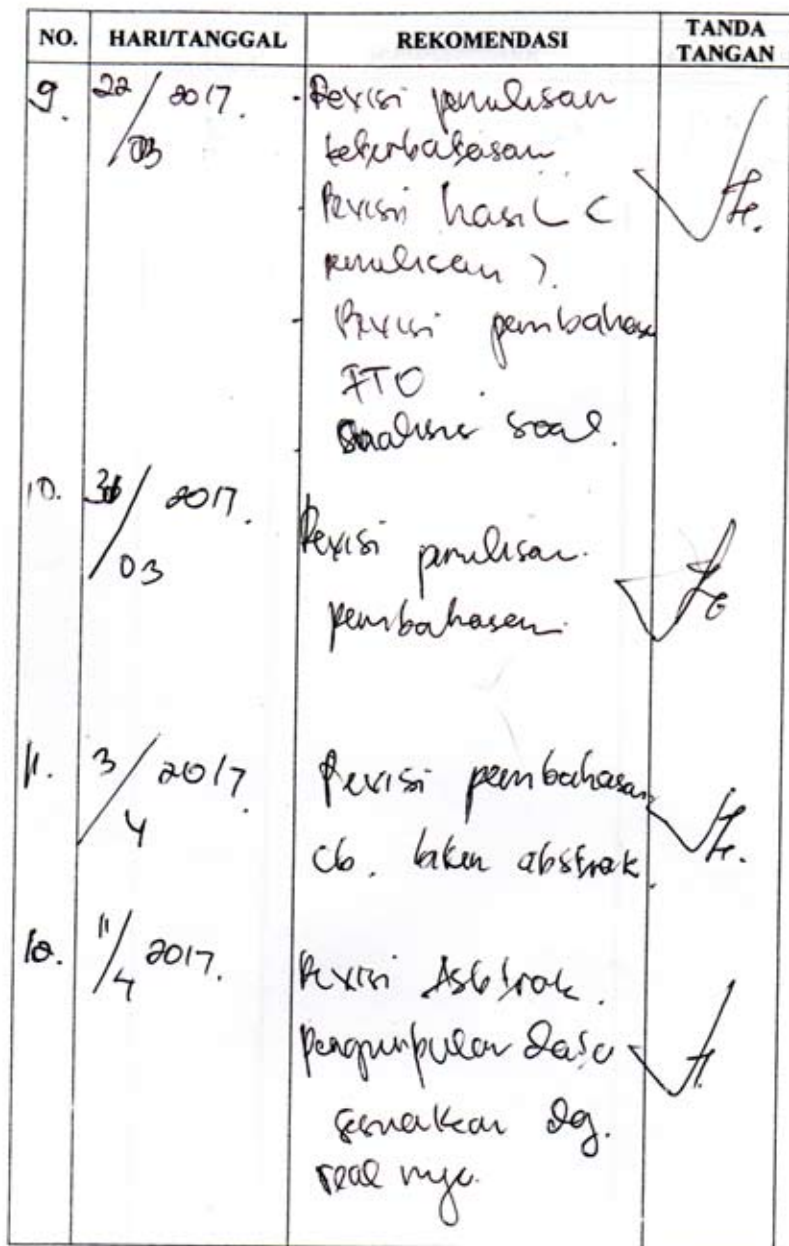 NO. HARI/TANGGAL REKOMENDASI TANDA TANGAN
9. 22/03 2017. - Revisi penulisan
keterbatasan
- Revisi hasil (
penulisan ).
- Revisi pembahasan
FTO.
- analisis soal.
10. /03 2017. Revisi penulisan
pembahasan
11. 3/4 2017. Revisi pembahasan
cb. bikin abstrak.
12. 11/4 2017. Revisi Abstrak.
pengumpulan data
sesuaikan dg.
real nya.